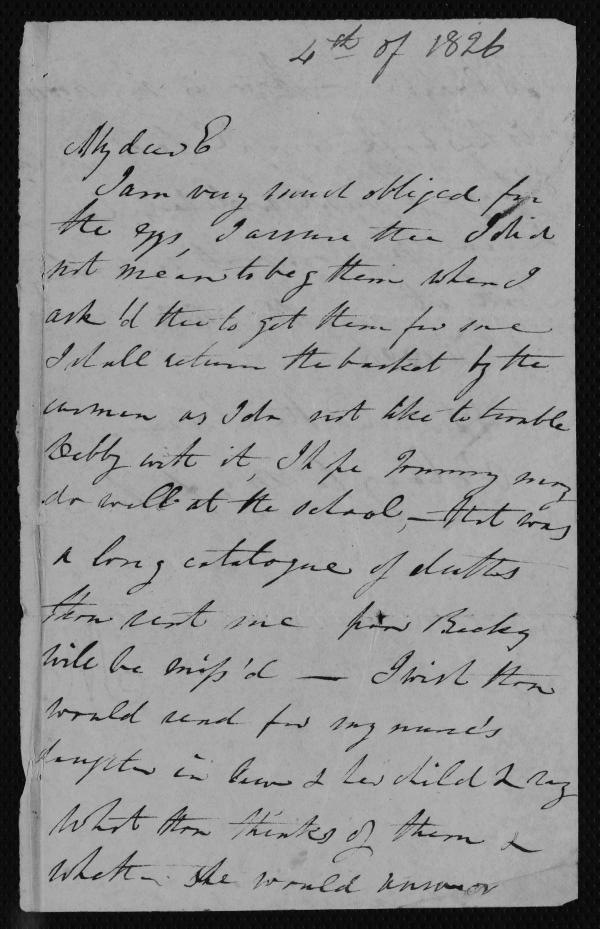 4th of 1826
My dear E
I am very much obliged for
the eggs, I assure thee I did
not mean to beg them when I
ask'd thee to get them for me
I shall return the basket by the
woman as I do not like to trouble
Debby with it, I hope Tommy may
do well at the school, — that was
a long catalogue of deaths
thou sent me poor Becky
will be miss'd — I wish thou
would send for my nurse's
daughter in law & her child & say
what thou thinks of them &
whether she would answer